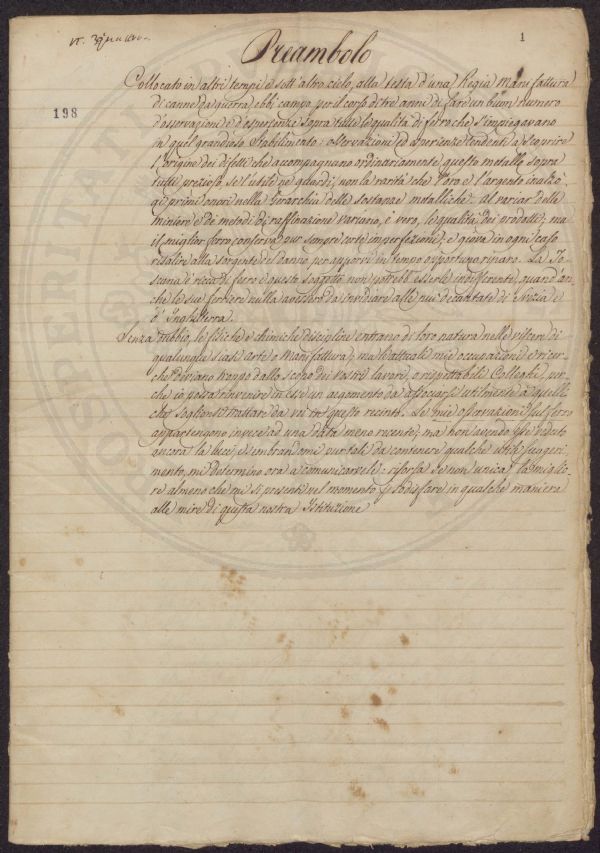 1
Preambolo
198
Collocato in altri tempi e sott'altro cielo, alla testa d'una Regia Manifattura
di canne da guerra ebbi campo, per il corso di tre anni di fare un buon numero
d'osservazioni e d'esperienze sopra tutte le qualità di ferro che s'impiegavano
in quel grandioso Stabilimento: osservazioni ed esperienze tendenti a scoprire
l'origine dei difetti che accompagnano ordinariamente questo metallo sopra
tutti prezioso se l'utile ne guardi, non la rarità che l'oro e l'argento inalzò
ai primi onori nella Gerarchia delle sostanze metalliche. Al variar delle
miniere e dei metodi di raffinazione variano, è vero, le qualità dei prodotti; ma
il miglior ferro conserva pur sempre certe imperfezioni; e giova in ogni caso
risalire alla sorgente del danno per apporvi in tempo opportuno riparo. La To-
scana è ricca di ferro e questo soggetto non potrebb'esserle indifferente, quand'an-
che le sue ferriere nulla avessero da invidiare alle più decantate di Svezia e
d'Inghilterra.
Senza dubbio, le fisiche e chimiche discipline entrano di loro natura nelle viscere di
qualunque siasi Arte o Manifattura; ma le attuali mie occupazioni e ricer-
che deviano troppo dallo scopo dei vostri lavori, o rispettabili Colleghi, per-
chè io possa rinvenire in esse un argomento da associarsi utilmente a quelle
che soglionsi trattare da voi in questo recinto. Le mie osservazioni sul ferro
appartengono invece ad una data meno recente; ma non avendo esse veduto
ancora la luce, e sembrandomi pur tali da contenere qualche utile suggeri-
mento, mi determino ora a comunicarvele: risorsa se non unica, la miglio-
re almeno che mi si presenti nel momento di sodisfare in qualche maniera
alle mire di questa nostra Istituzione